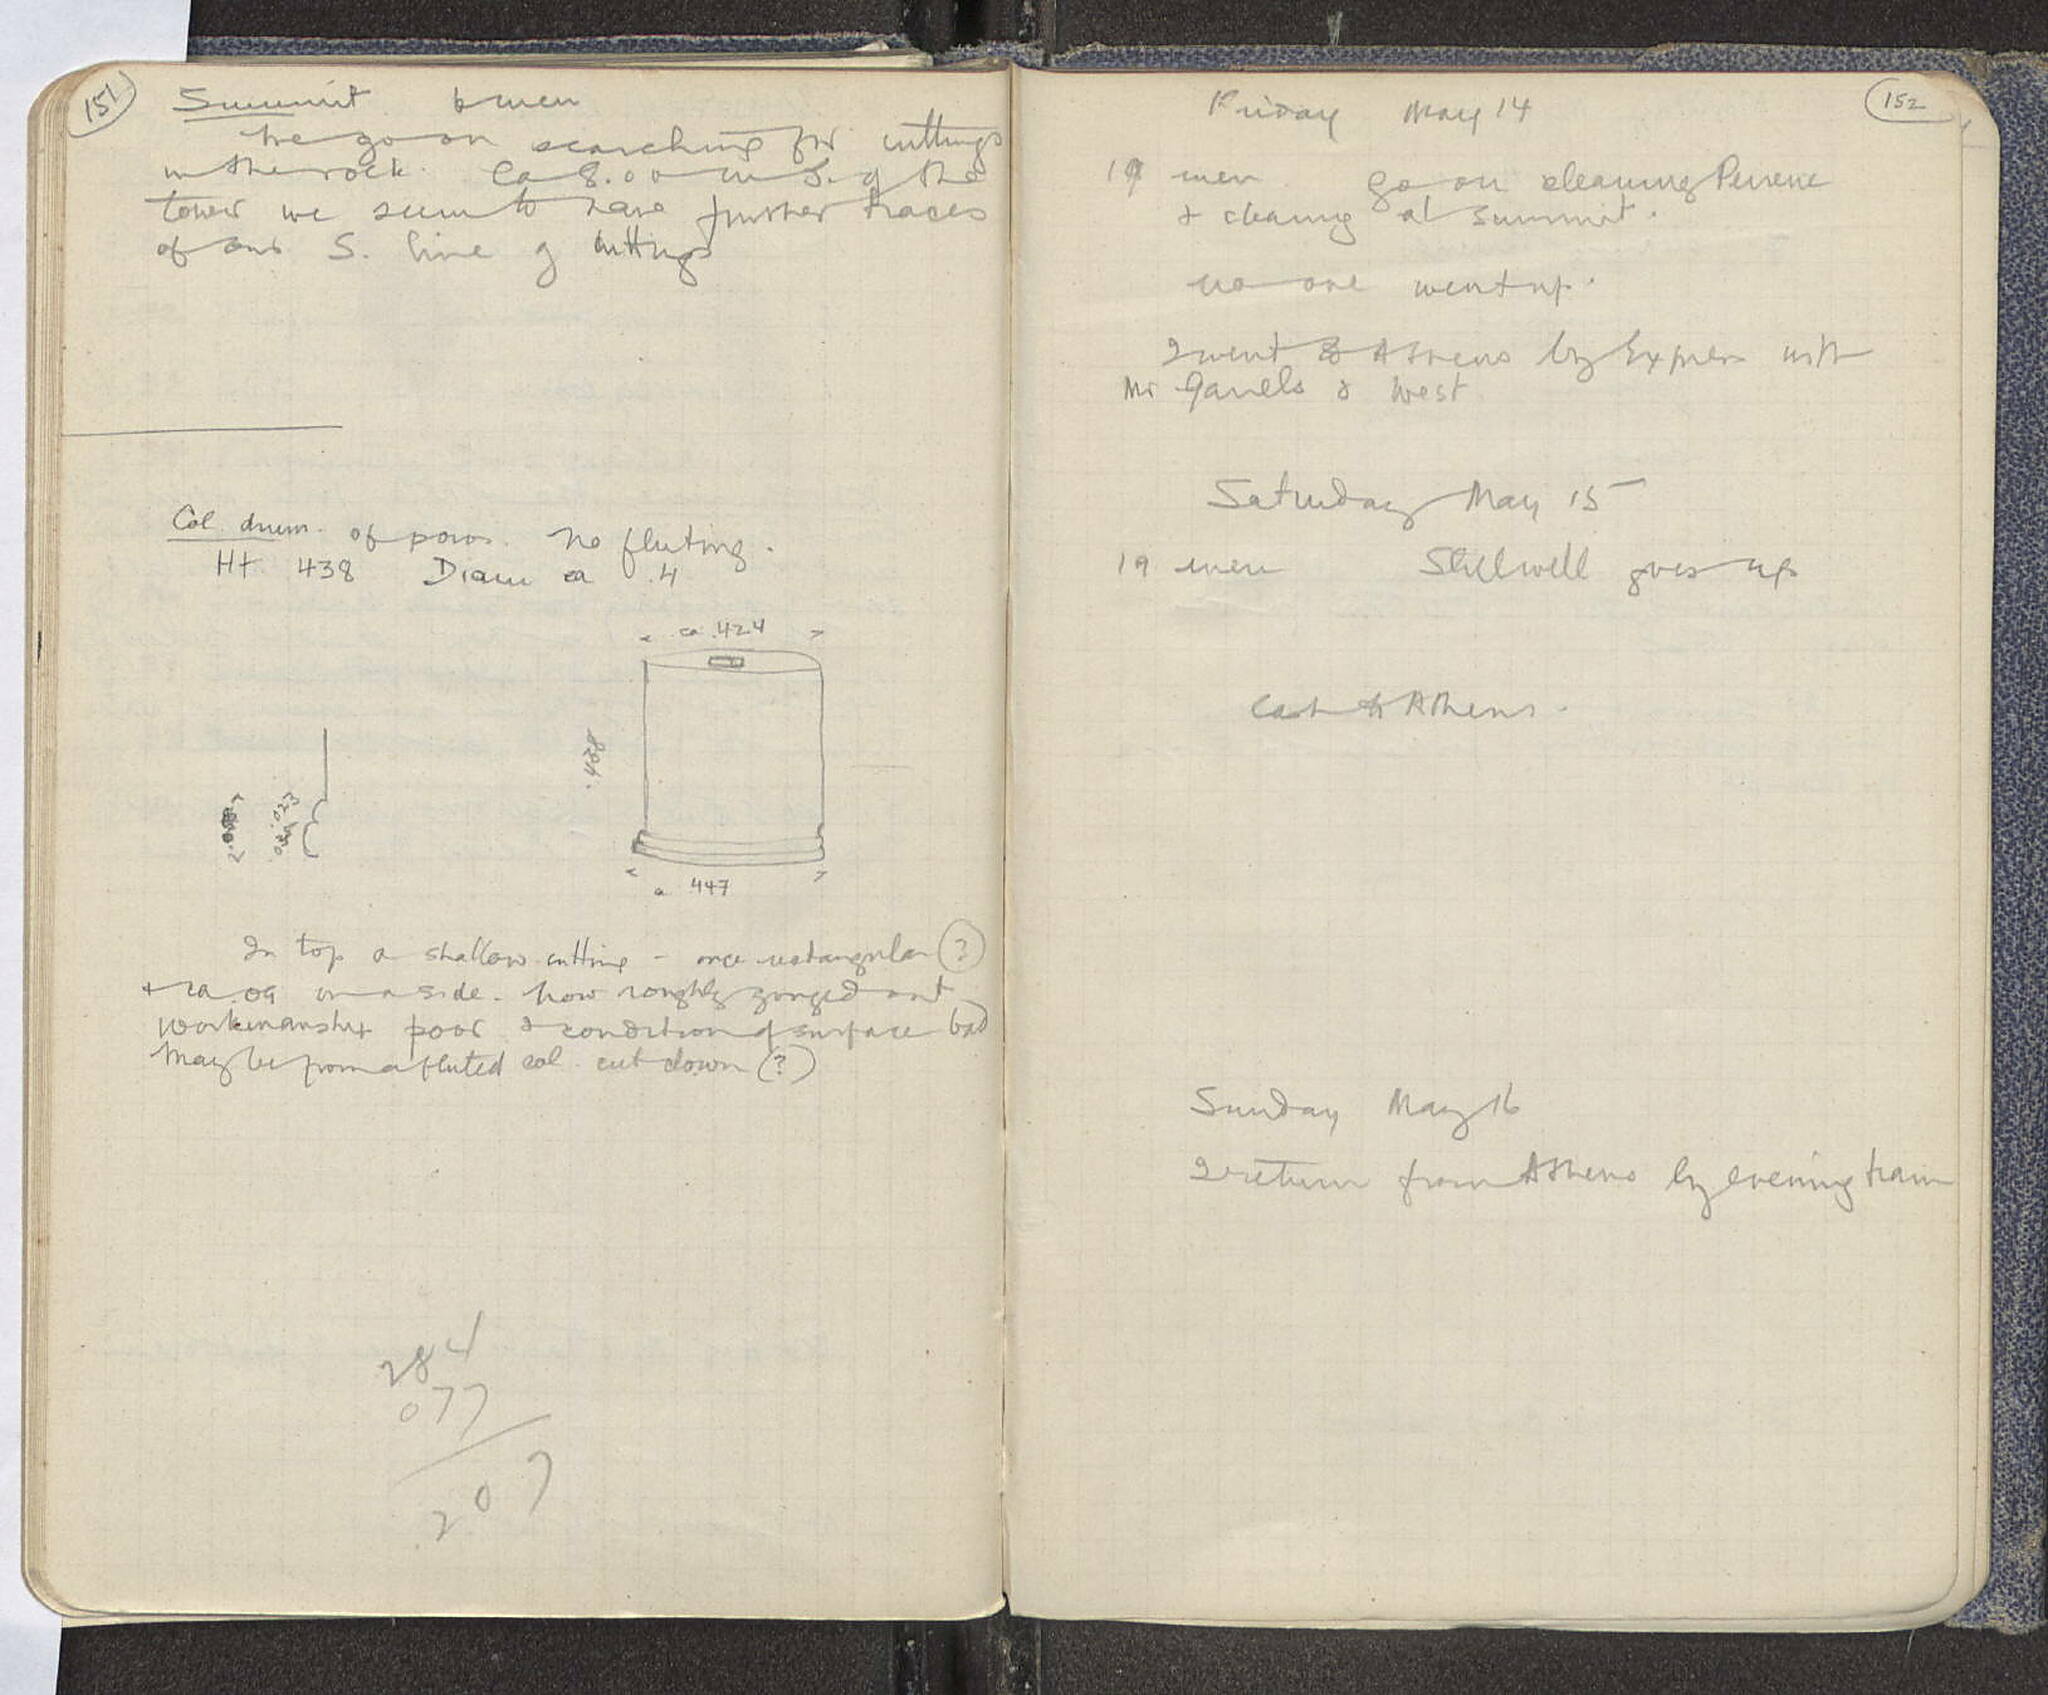 151
Summit 6 men
We go on searching for cuttings
in the rock. Ca 8.00 m S. of the
tower we seem to have further traces
of our S. line of cuttings
Col. drum. of poros. No fluting.
Ht 438 Diam ca .4
ca .424
.438
.023
ca .447
In top a shallow cutting - once rectangular (?)
+ ca .09 on a side. Now roughly gouged out
Workmanship poor & condition of surface bad
May be from a fluted col. cut down (?)
284
077
207
152
Friday May 14
19 men go on cleaning Peirene
& clearing at summit.
no one went up.
I went to Athens by Express with
Mr & West
Saturday May 15
19 men Stillwell goes up
Cast to Athens.
Sunday May 16
I return from Athens by evening train